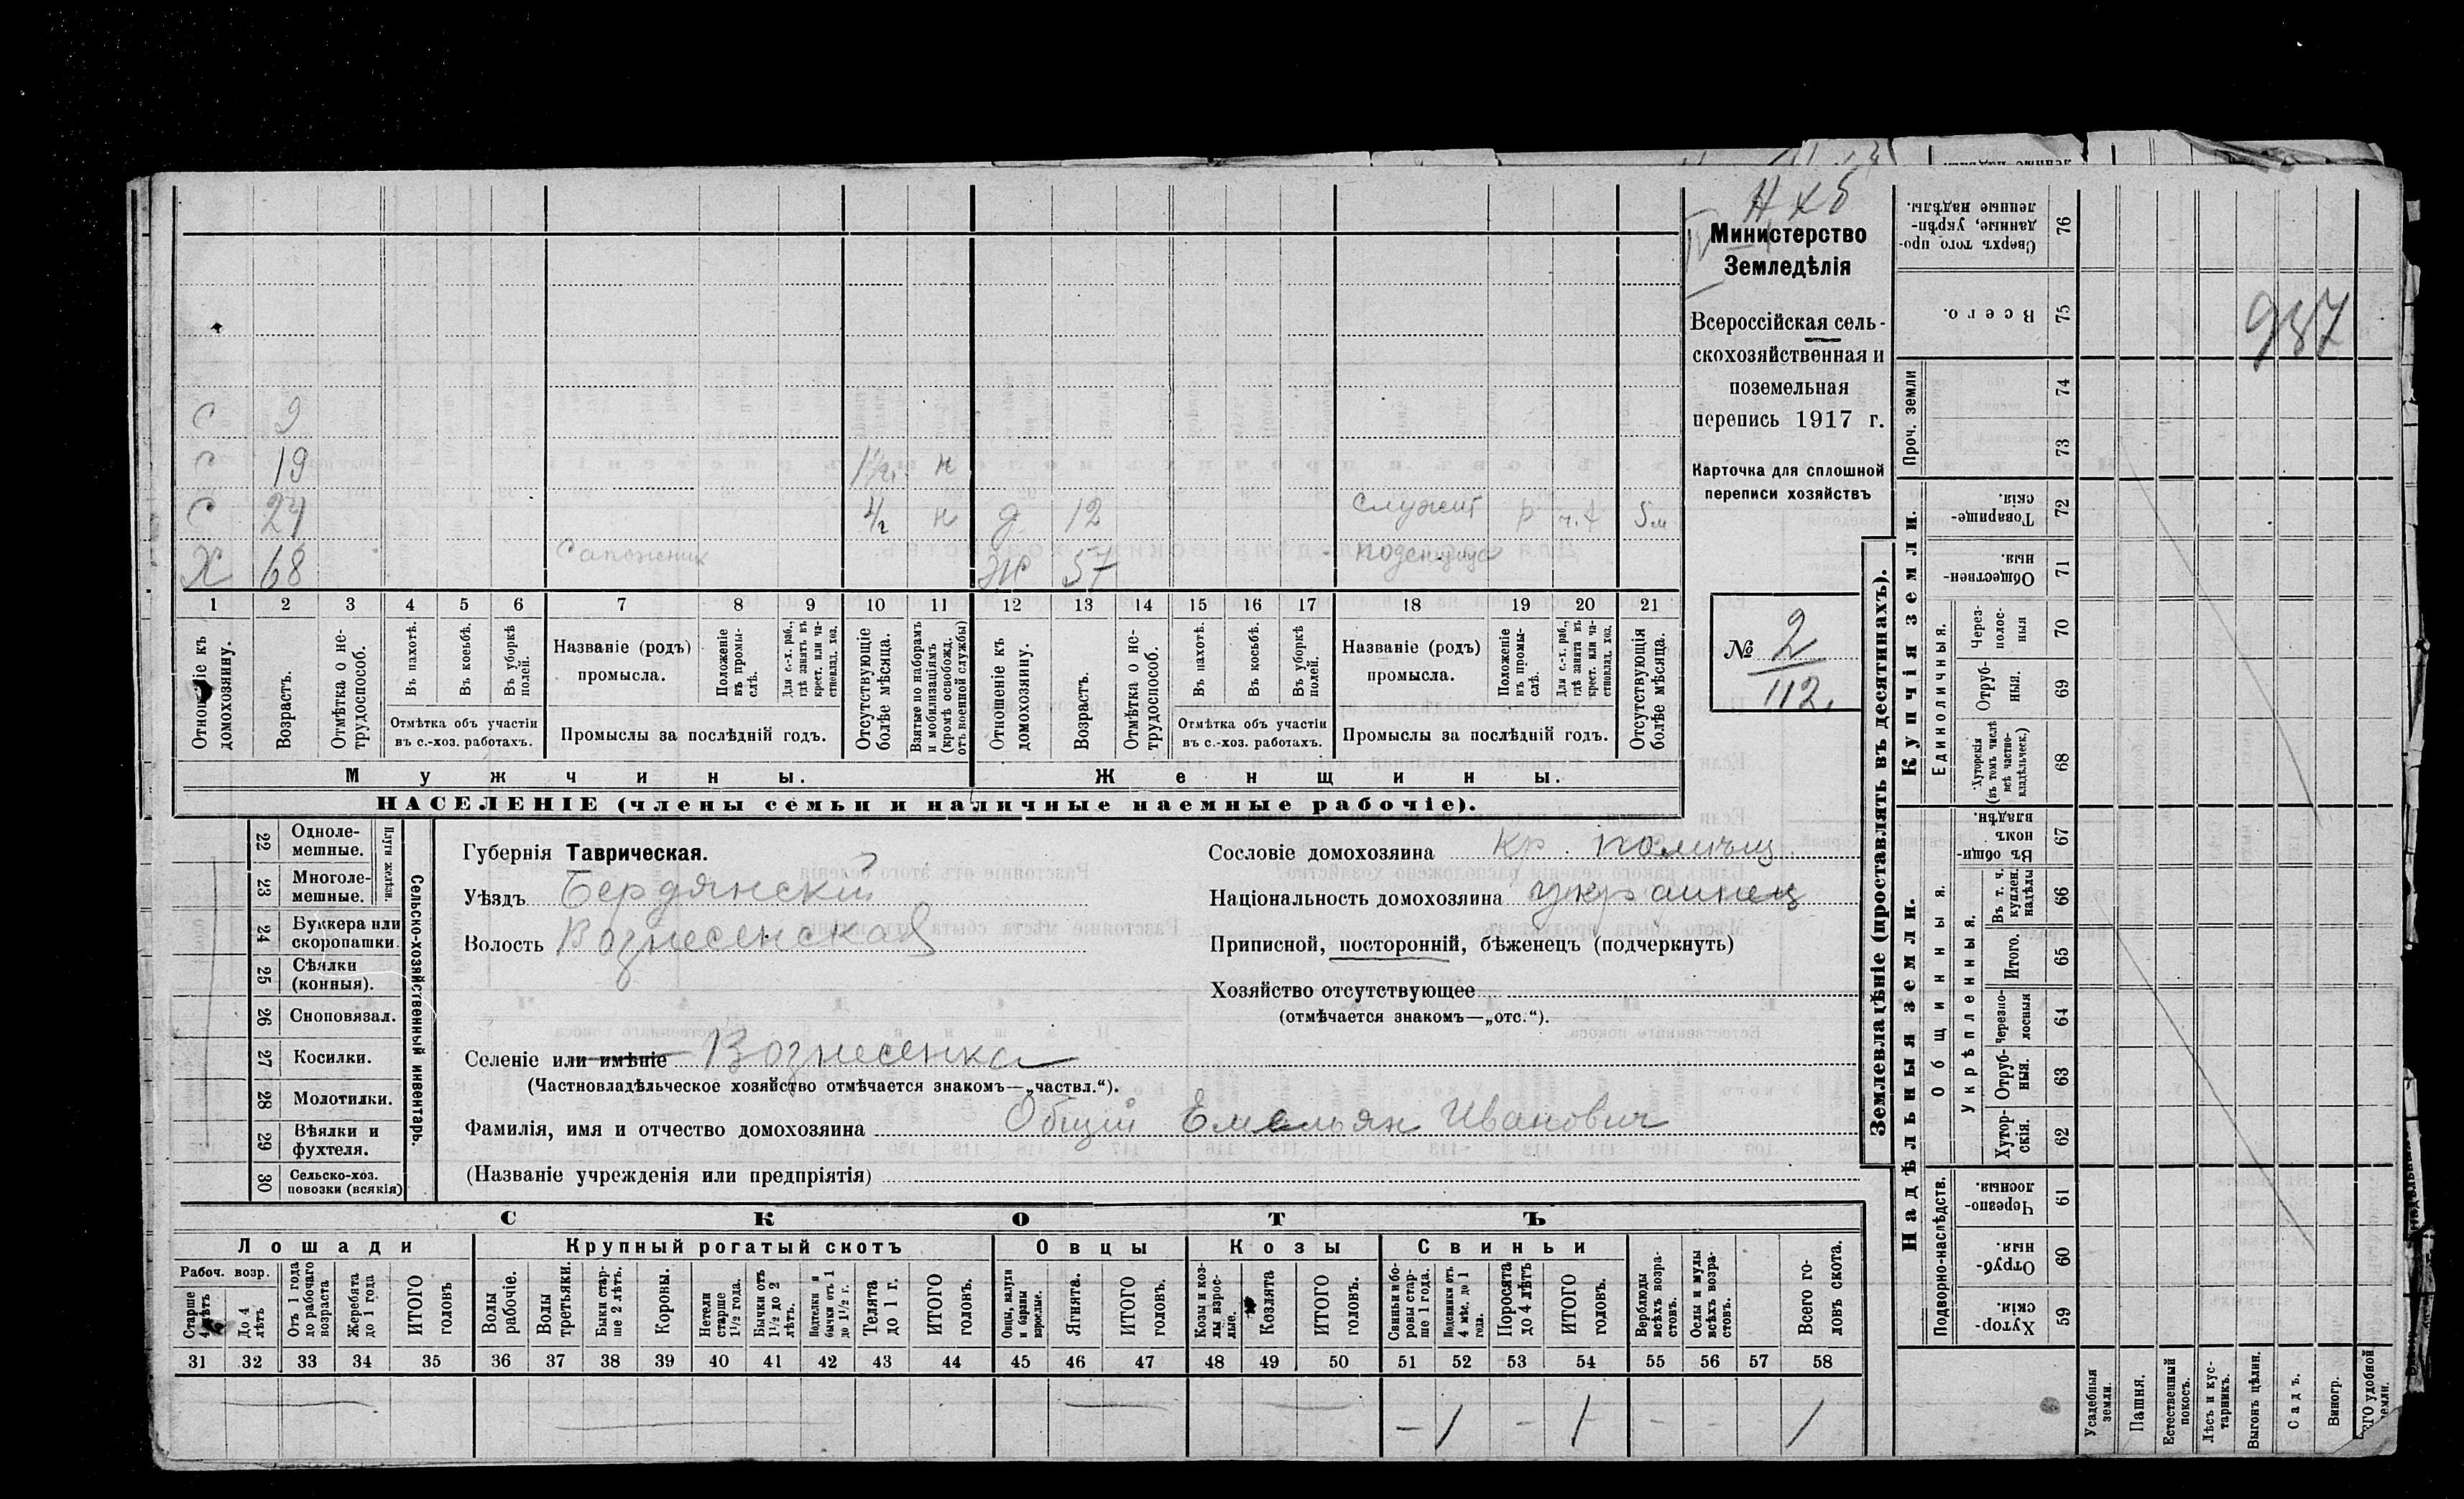 Н х б
Министерство
Земледѣлія
Всероссійская сель-
скохозяйственная и
поземельная
перепись 1917 г.
Карточка для сплошной
переписи хозяйствъ
№ 2
112
С 9
С 19 н
С 24 н д 12 служит р 5 м
Х 68 сапожник ж 57 поденщица
1 2 3 4 5 6 7 8 9 10 11 12 13 14 15 16 17 18 19 20 21
Отношеніе къ домохозяину.
Возрастъ.
Отмѣтка о не-
трудоспособ.
Въ пахотѣ.
Въ косьбѣ.
Въ уборкѣ
полей.
Отмѣтка объ участіи
въ с.-хоз. работахъ.
Названіе (родъ)
промысла.
Положеніе
въ промы-
слѣ.
Для с.-х. раб.,
гдѣ занятъ въ
крест. или ча-
стновлад. хоз.
Промыслы за послѣдній годъ.
Отсутствующіе
болѣе мѣсяца.
Взятые по наборамъ
и мобилизаціямъ
(кромѣ освобожд.
отъ военной службы)
Отношеніе къ
домохозяину.
Возрастъ.
Отмѣтка о не-
трудоспособ.
Въ пахотѣ.
Въ косьбѣ.
Въ уборкѣ
полей.
Отмѣтка объ участіи
въ с.-хоз. работахъ.
Названіе (родъ)
промысла.
Положеніе
въ промы-
слѣ.
Для с.-х. раб.,
гдѣ занята въ
крест. или ча-
стновлад. хоз.
Промыслы за послѣдній годъ.
Отсутствующія
болѣе мѣсяца.
Мужчины.
Женщины.
НАСЕЛЕНІЕ (члены семьи и наличные наемные рабочіе).
22 Одноле-
мешные.
23 Многоле-
мешные.
Плуги желѣзн.
24 Буккера или
скоропашки.
25 Сѣялки
(конныя).
26 Сноповязал.
27 Косилки.
28 Молотилки.
29 Вѣялки и
фухтеля.
30 Сельско-хоз.
повозки (всякія)
Сельско-хозяйственный инвентарь.
Губернія Таврическая.
Уѣздъ Бердянский
Волость Вознесенская
Сословіе домохозяина кр.
Національность домохозяина украинец
Приписной, посторонній, бѣженецъ (подчеркнуть)
Хозяйство отсутствующее
(отмѣчается знакомъ—„отс.“).
Селеніе или имѣніе Вознесенка
(Частновладѣльческое хозяйство отмѣчается знакомъ—„частвл.“).
Фамилія, имя и отчество домохозяина Общий Емельян Иванович
(Названіе учрежденія или предпріятія)
СКОТЪ
Лошади
Крупный рогатый скотъ
Овцы
Козы
Свиньи
Рабоч. возр.
Старше
4 лѣтъ
До 4
лѣтъ
Отъ 1 года
до рабочаго
возраста
Жеребята
до 1 года
ИТОГО
головъ
Волы
рабочіе.
Волы
третьяки.
Быки стар-
ше 2 лѣтъ.
Коровы.
Нетели
старше
1½ года.
Бычки отъ
1½ до 2
лѣтъ.
Подтелки и
бычки отъ 1
до 1½ г.
Телята
до 1 г.
ИТОГО
головъ.
Овцы, валухи
и бараны
взрослые.
Ягнята.
ИТОГО
головъ.
Козы и коз-
лы взрос-
лые.
Козлята
ИТОГО
головъ.
Свиньи и бо-
ровы стар-
ше 1 года.
Подсвинки отъ
4 мѣс. до 1
года.
Поросята
до 4 лѣтъ
ИТОГО
головъ.
Верблюды
всѣхъ возра-
стовъ.
Ослы и мулы
всѣхъ возра-
стовъ.
Всего го-
ловъ скота.
31 32 33 34 35 36 37 38 39 40 41 42 43 44 45 46 47 48 49 50 51 52 53 54 55 56 57 58
– 1 – 1 – – 1
Землевладѣніе (проставлять въ десятинахъ).
Надѣльныя земли.
Купчія земли.
Проч. земли
Подворно-наслѣдств.
Общинныя.
Укрѣпленныя.
Единоличныя.
Сверхъ того про-
данные, укрѣп-
ленные надѣлы. 76
Всего. 75
987
74
73
Товарище-
скія. 72
Обществен-
ныя. 71
Через-
полос-
ныя 70
Отруб-
ныя. 69
Хуторскія
(въ томъ числѣ
всѣ частно-
владѣльческ.) 68
Въ общин-
номъ
владѣн. 67
Въ т. ч.
куплен.
надѣлы 66
Итого. 65
Черезпо-
лосныя 64
Отруб-
ныя. 63
Хутор-
скія. 62
Черезпо-
лосныя. 61
Отруб-
ныя. 60
Хутор-
скія. 59
Усадебныя
земли.
Пашня.
Естественный
покосъ.
Лѣсъ и кус-
тарникъ.
Выгонъ цѣлин.
Садъ.
Виногр.
ЕГО удобной
земли.